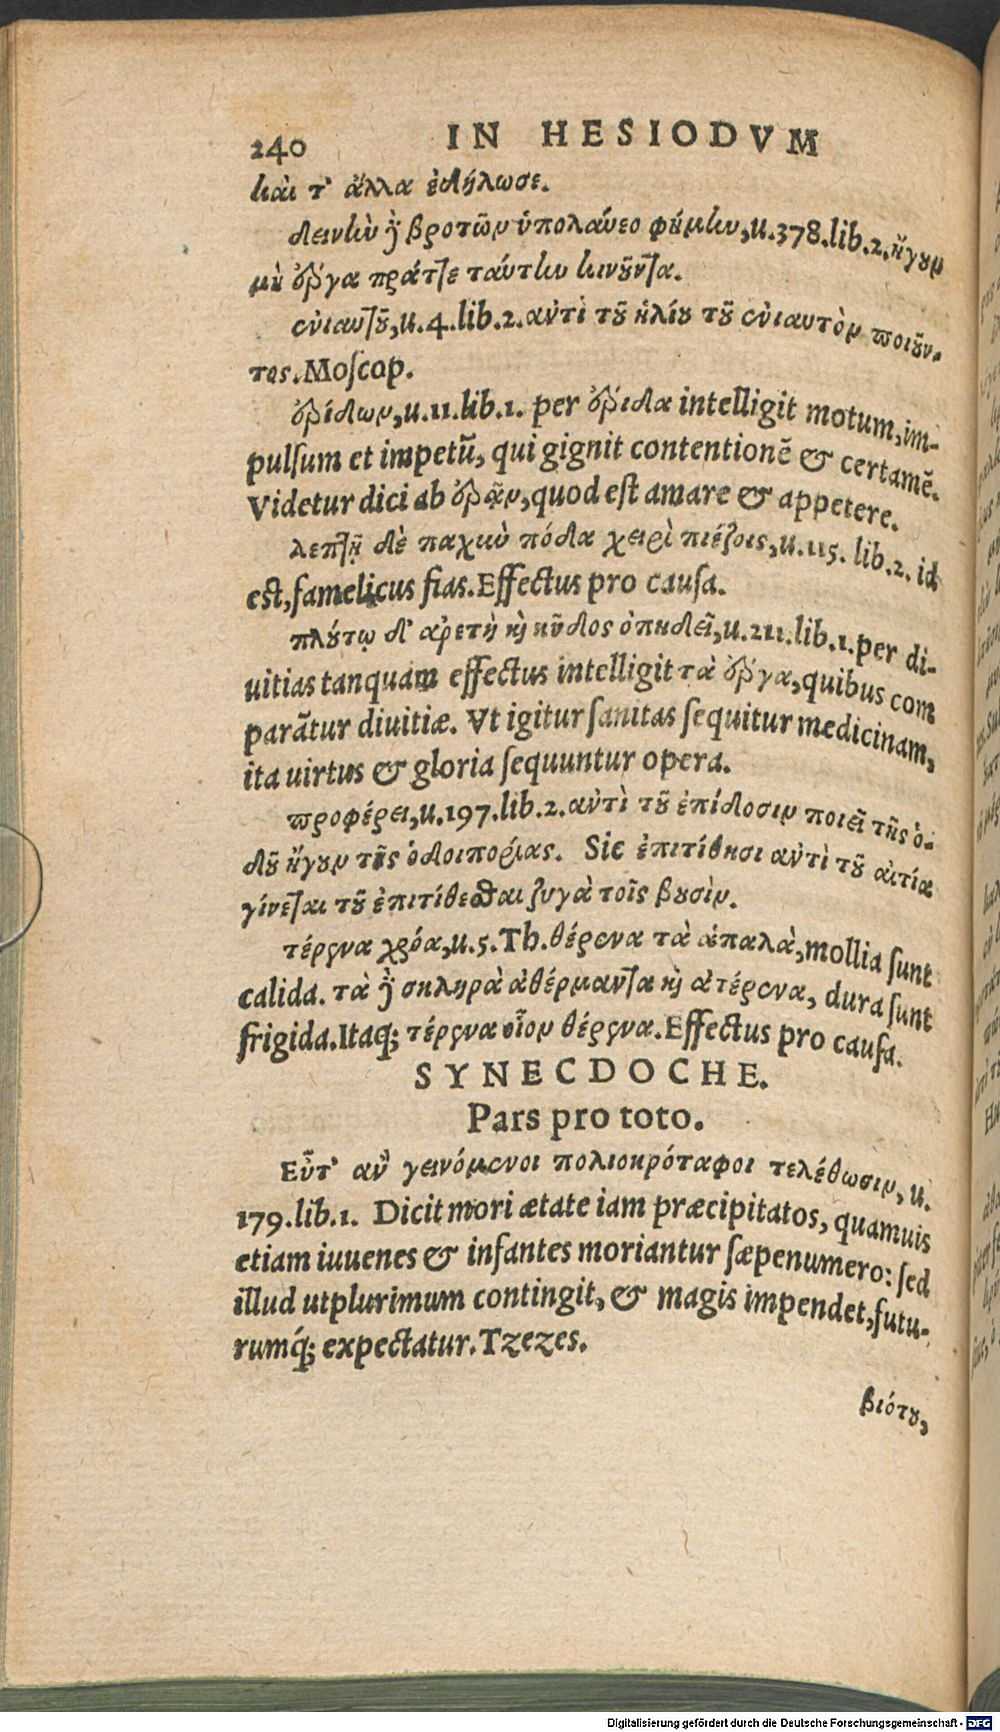 240 IN HESIODVM
καὶ τ' ἄλλα ἐδήλωσε.
δεινὴν δὲ βροτῶν ὑπολεύεο φήμην, u. 378. lib. 2. ἤγουν
μὴ ἔργα πράττε ταύτην κινοῦντα.
ἐνιαυτοῦ, u. 4. lib. 2. αὐτὶ τοῦ ἡλίου τοῦ ἐνιαυτὸν ποιοῦν-
τος. Moſcop.
ἐρίδων, u. 11. lib. 1. per ἔριδα intelligit motum, im-
pulſum et impetū, qui gignit contentionē & certamē.
Videtur dici ab ἐρᾷν, quod eſt amare & appetere.
λεπτῇ δὲ παχὺν πόδα χειρὶ πιέζοις, u. 115. lib. 2. id
eſt, famelicus fias. Effectus pro cauſa.
πλούτῳ δ' ἀρετὴ καὶ κῦδος ὀπηδεῖ, u. 211. lib. 1. per di-
uitias tanquam effectus intelligit τὰ ἔργα, quibus com
parātur diuitiæ. Vt igitur ſanitas ſequitur medicinam,
ita uirtus & gloria ſequuntur opera.
προφέρει, u. 197. lib. 2. αὐτὶ τοῦ ἐπίδοσιν ποιεῖ τῆς ὁ-
δοῦ ἤγουν τῆς ὁδοιπορίας. Sic ἐπιτίθησι αὐτὶ τοῦ αἰτία
γίνεται τοῦ ἐπιτίθεσθαι ζυγὰ τοῖς βουσὶν.
τέρενα χρόα, u. 5. Th. θέρενα τὰ ἁπαλὰ, mollia ſunt
calida. τὰ δὲ σκληρὰ ἀθέρμαντα καὶ ἀτέρενα, dura ſunt
frigida. Itaq; τέρενα οἷον θέρενα. Effectus pro cauſa.
SYNECDOCHE.
Pars pro toto.
Εὖτ' ἂν γεινόμενοι πολιοκρόταφοι τελέθωσιν, u.
179. lib. 1. Dicit mori ætate iam præcipitatos, quamuis
etiam iuuenes & infantes moriantur ſæpenumero: ſed
illud utplurimum contingit, & magis impendet, futu-
rumq́; expectatur. Tzezes.
βιότου,
Digitalisierung gefördert durch die Deutsche Forschungsgemeinschaft - DFG